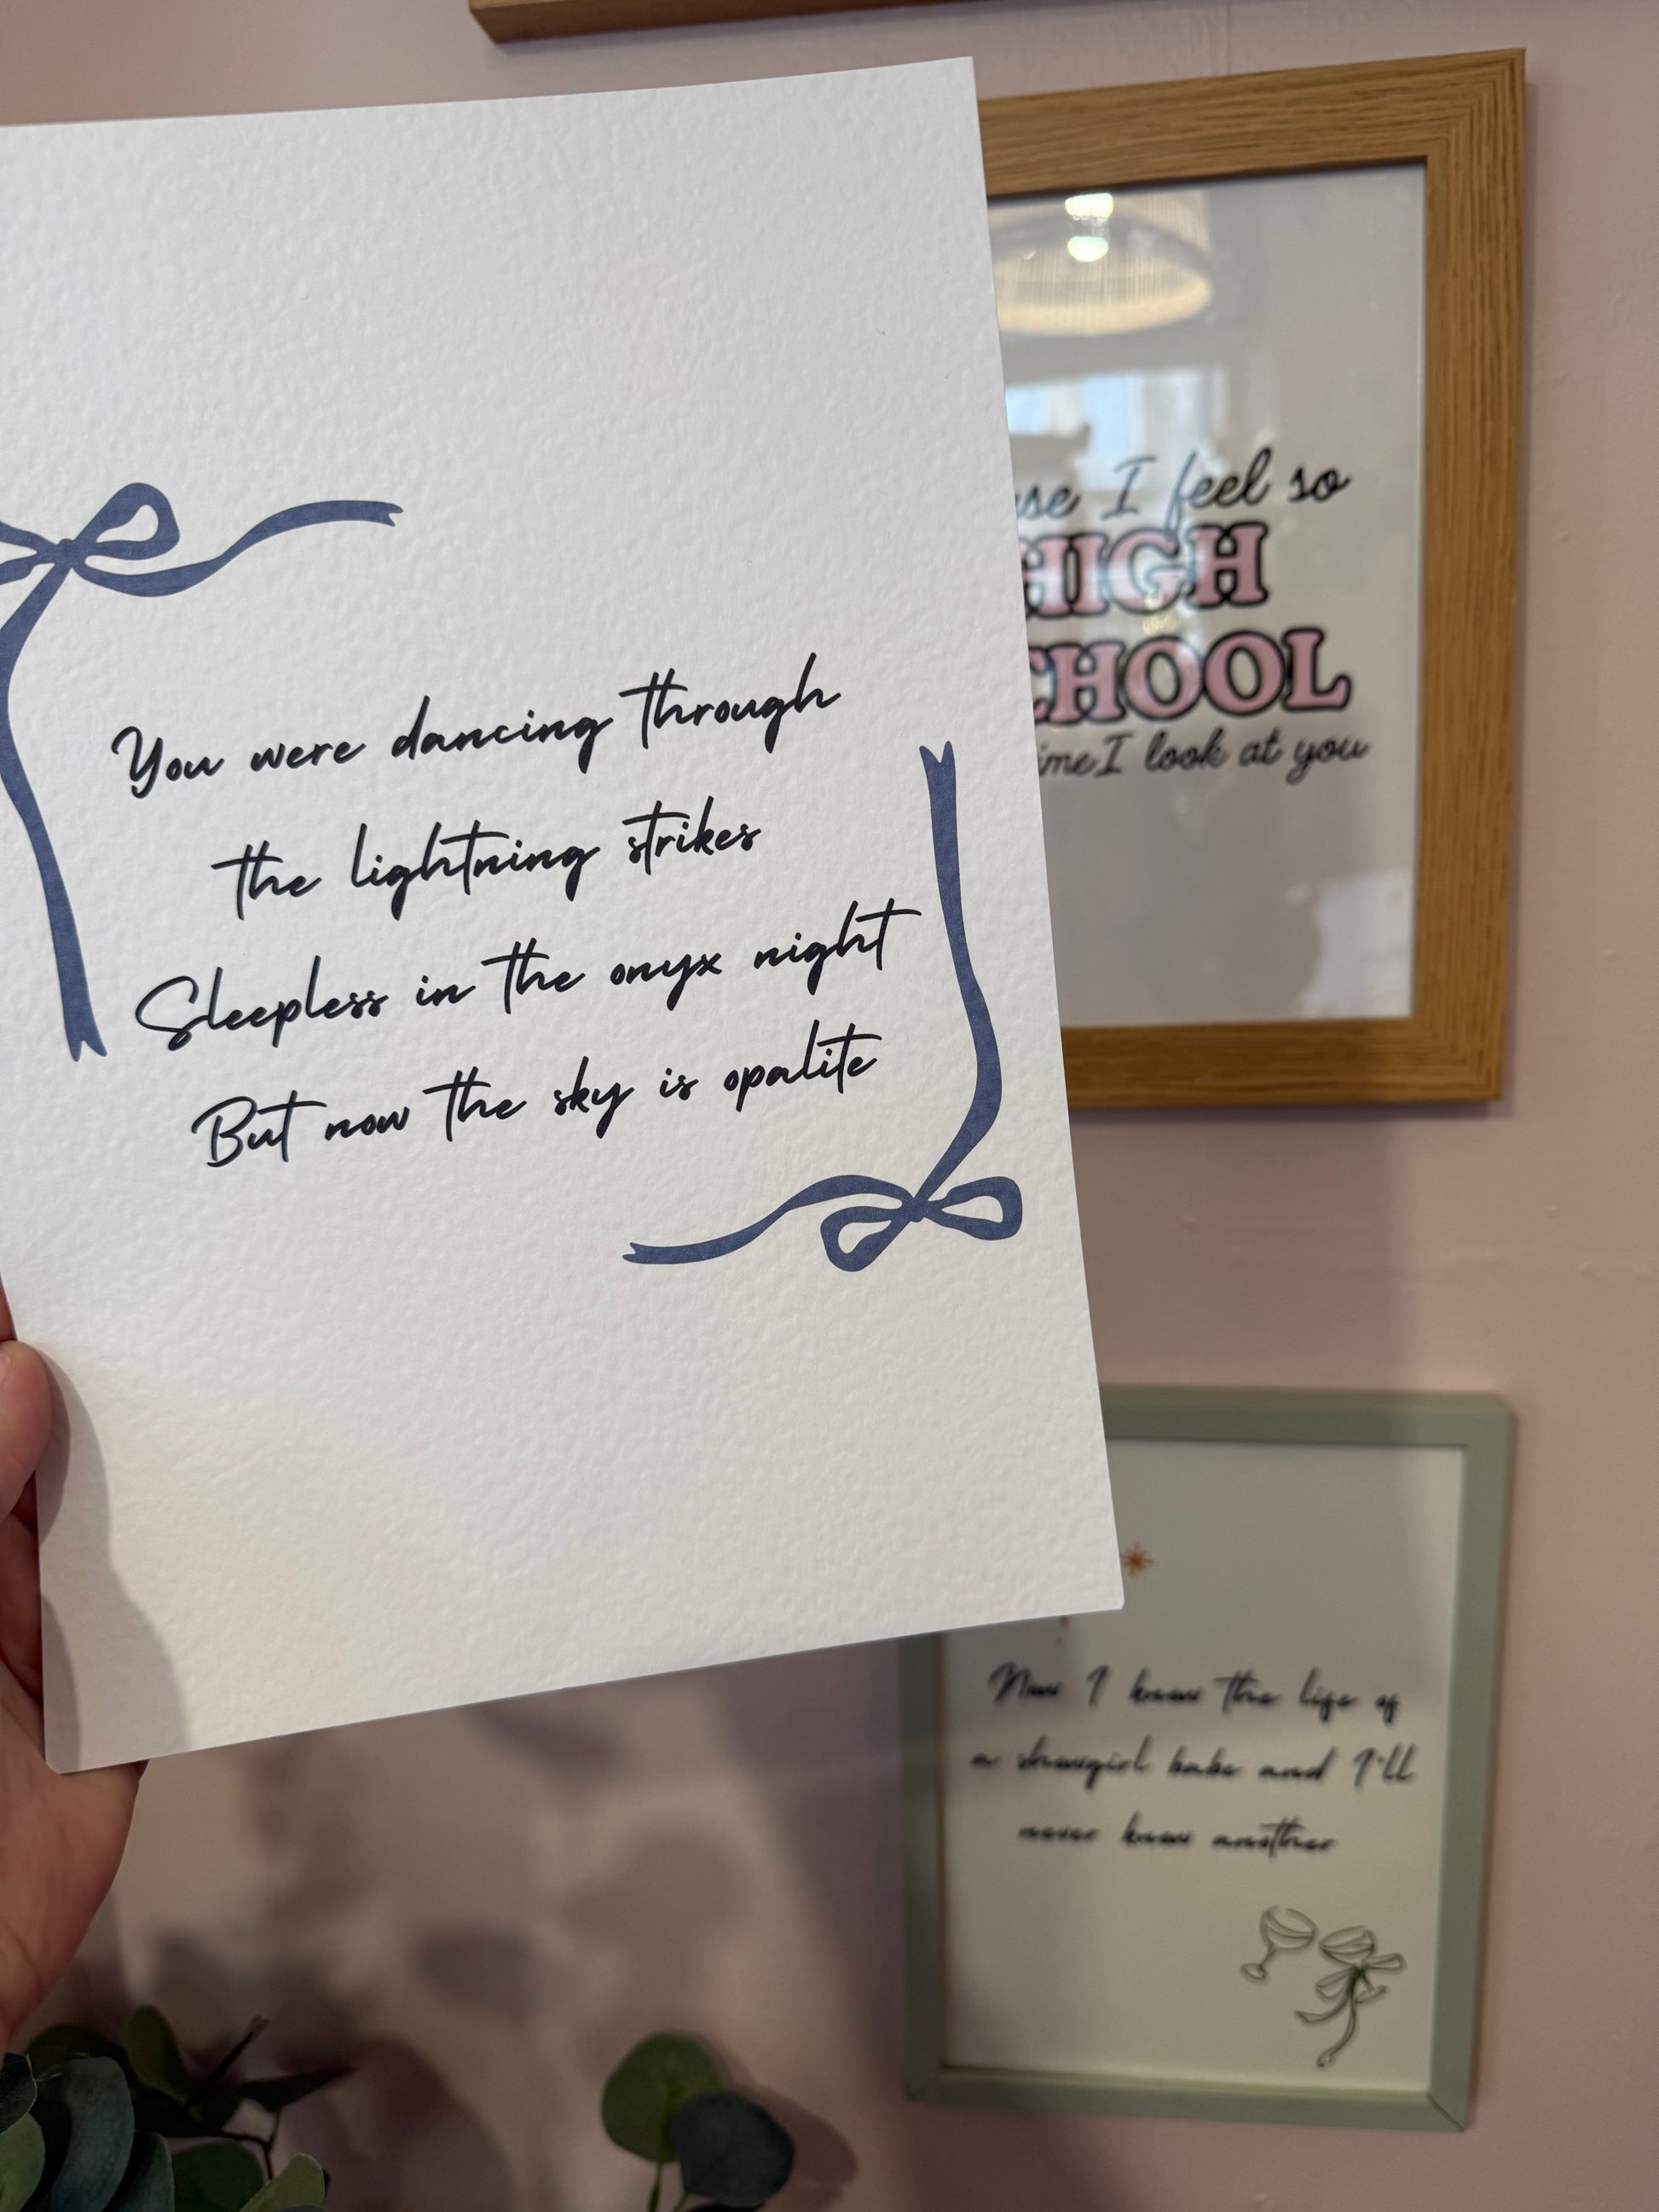 You were dancing through
the lightning strikes
Sleepless in the onyx night
But now the sky is opalite
I feel so
HIGH
I look at you
Now I know the life of
a showgirl babe and I'll
never know another